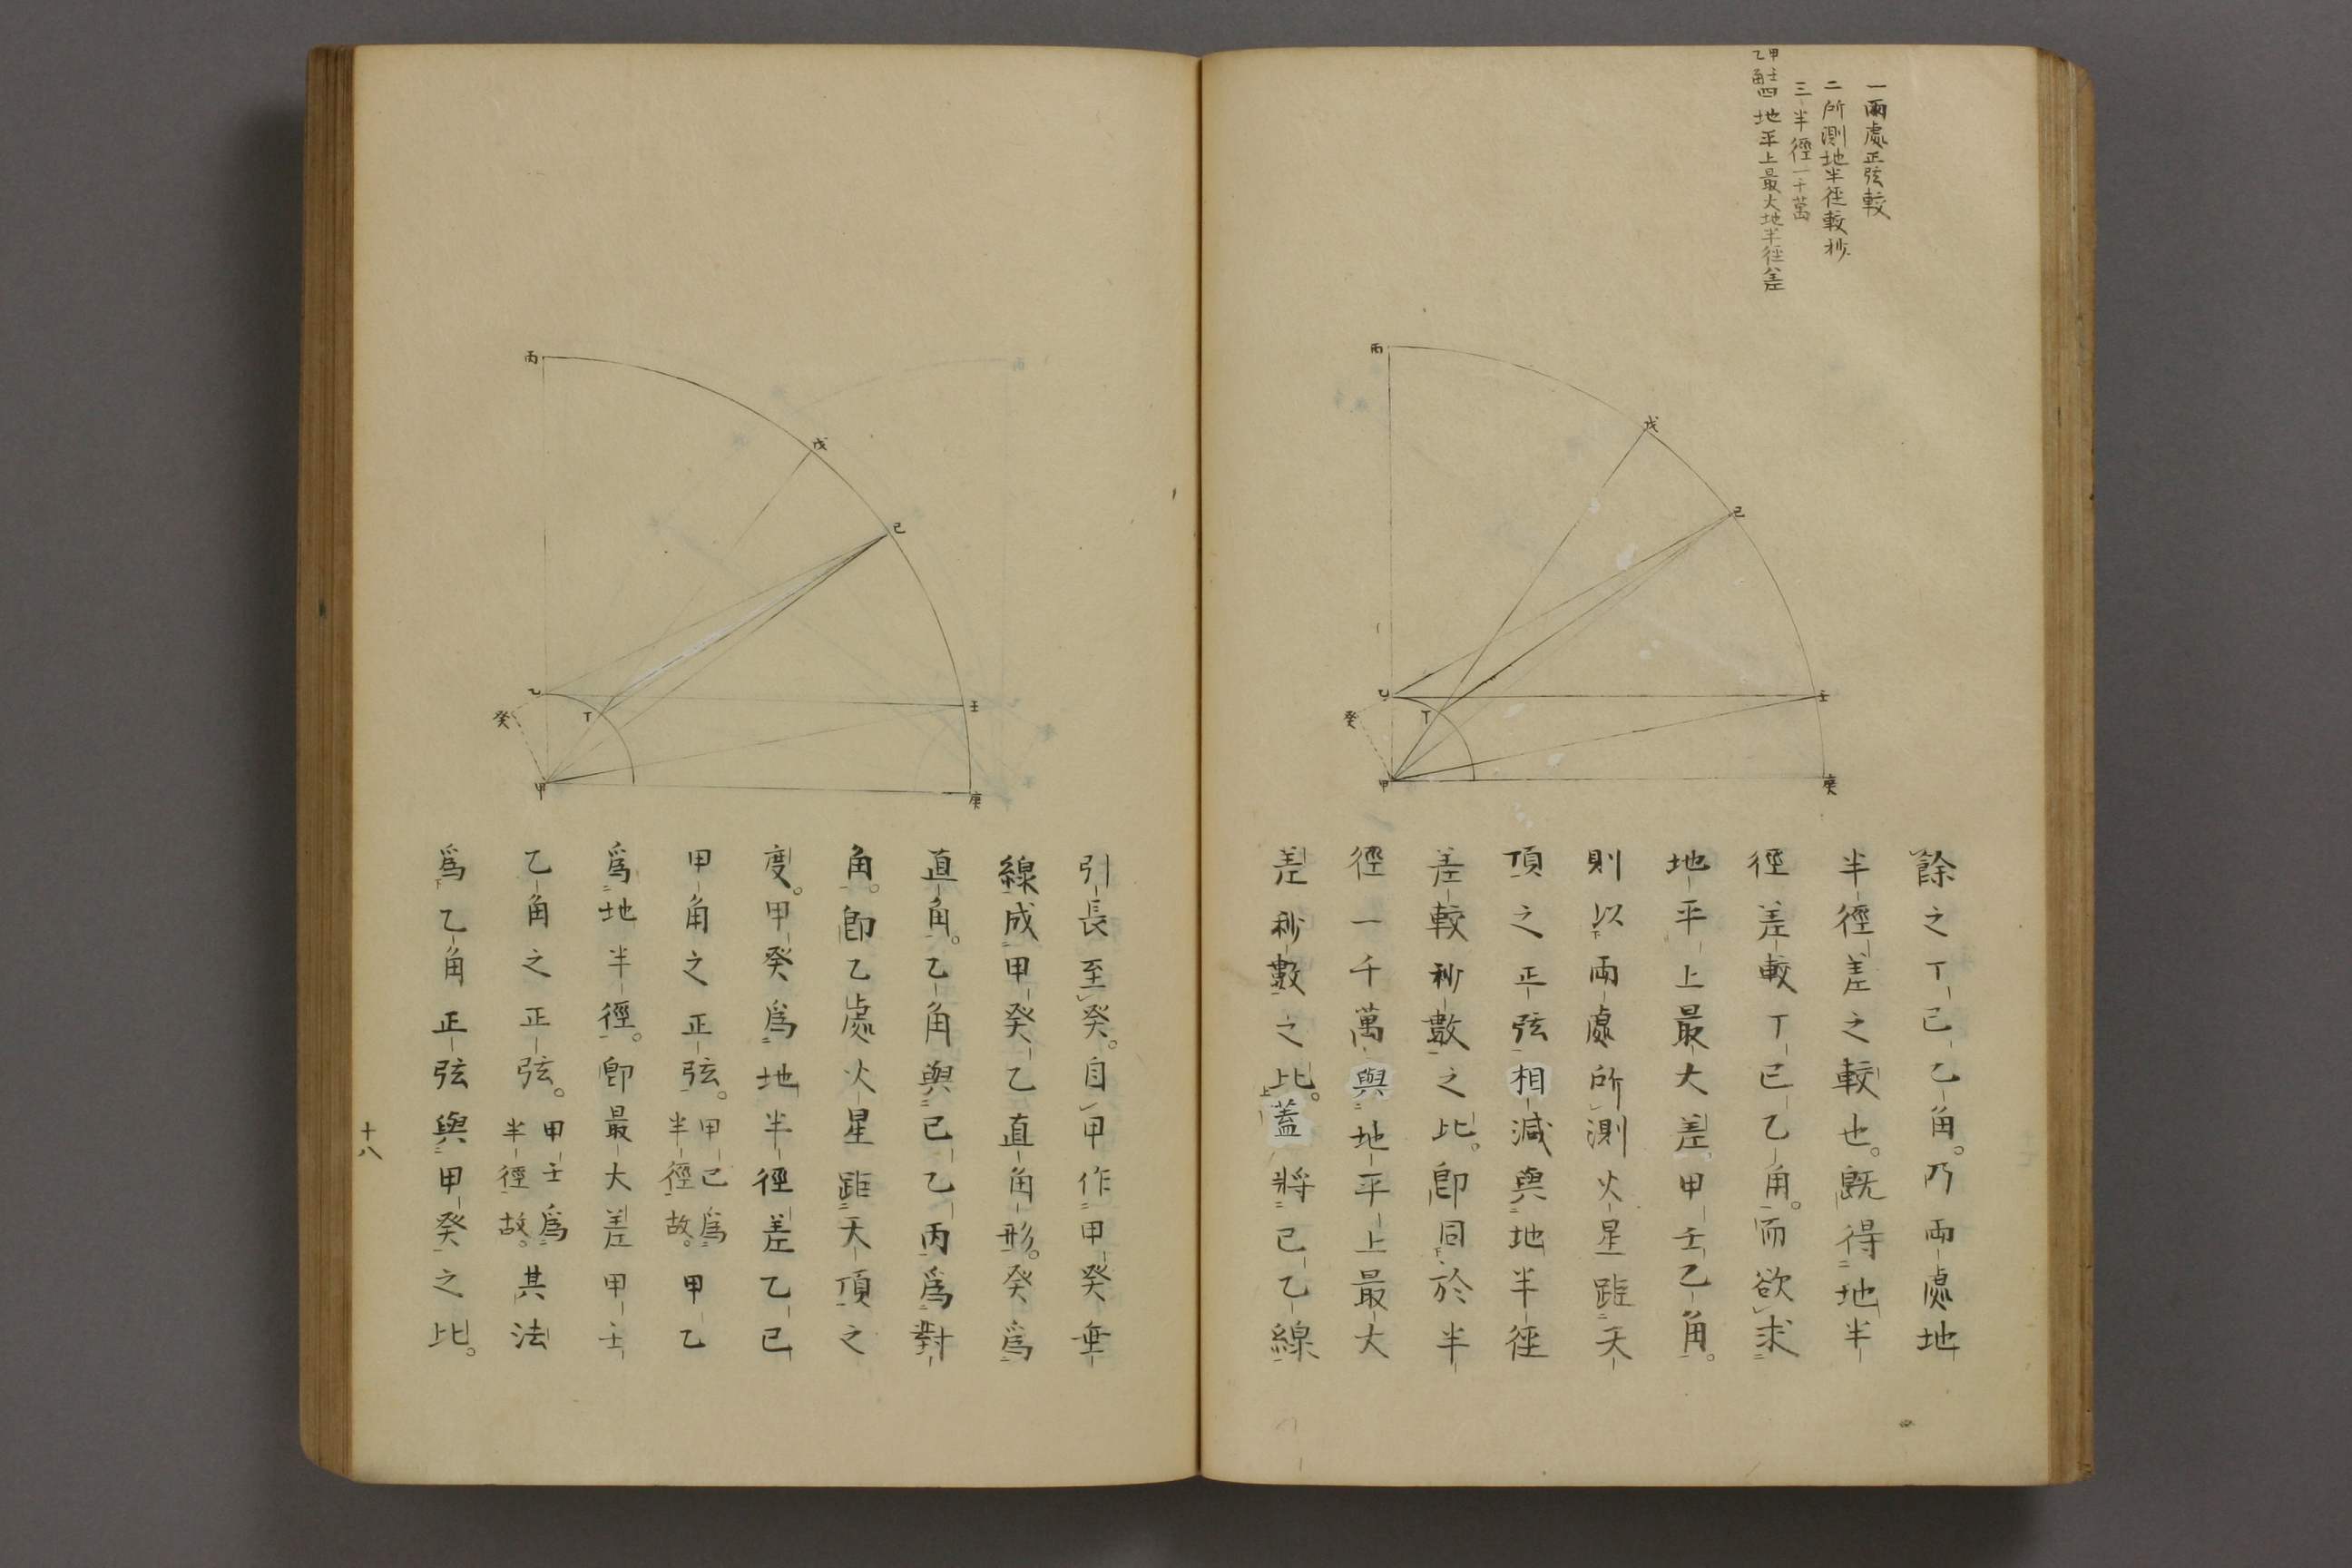 一兩處正弦較
二所測地半徑較秒
三半徑一千萬
四地平上最大地半徑差
甲壬
乙角
丙
戊
己
乙
丁
壬
癸
甲
庚
餘之丁己乙角。乃兩處地
半徑差之較也。既得地半
徑差較丁己乙角。而欲求
地平上最大差。甲壬乙角。
則以兩處所測火星距天
頂之正弦相減與地半徑
差較秒數之比。卽同於半
徑一千萬與地平上最大
差秒數之比。蓋將己乙線
丙
戊
己
乙
丁
壬
癸
甲
庚
引長至癸。自甲作甲癸垂
線成甲癸乙直角形。癸為
直角。乙角與己乙丙為對
角。卽乙處火星距天頂之
度。甲癸為地半徑差乙己
甲角之正弦。甲己為半徑故。甲乙
為地半徑。卽最大差甲壬
乙角之正弦。甲壬為半徑故。其法
為乙角正弦與甲癸之比。
十八